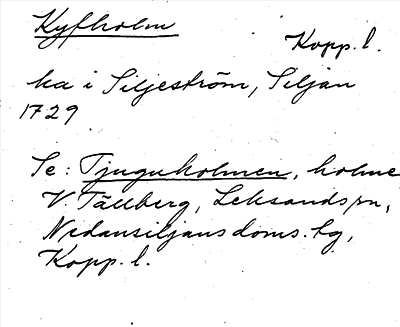 Kyfholm
Kopp. l.
ha i Siljeström, Siljan
1729
Se: Tjuguholmen, holme
V. Tällberg, Leksands sn,
Nedansiljans doms. tg,
Kopp. l.